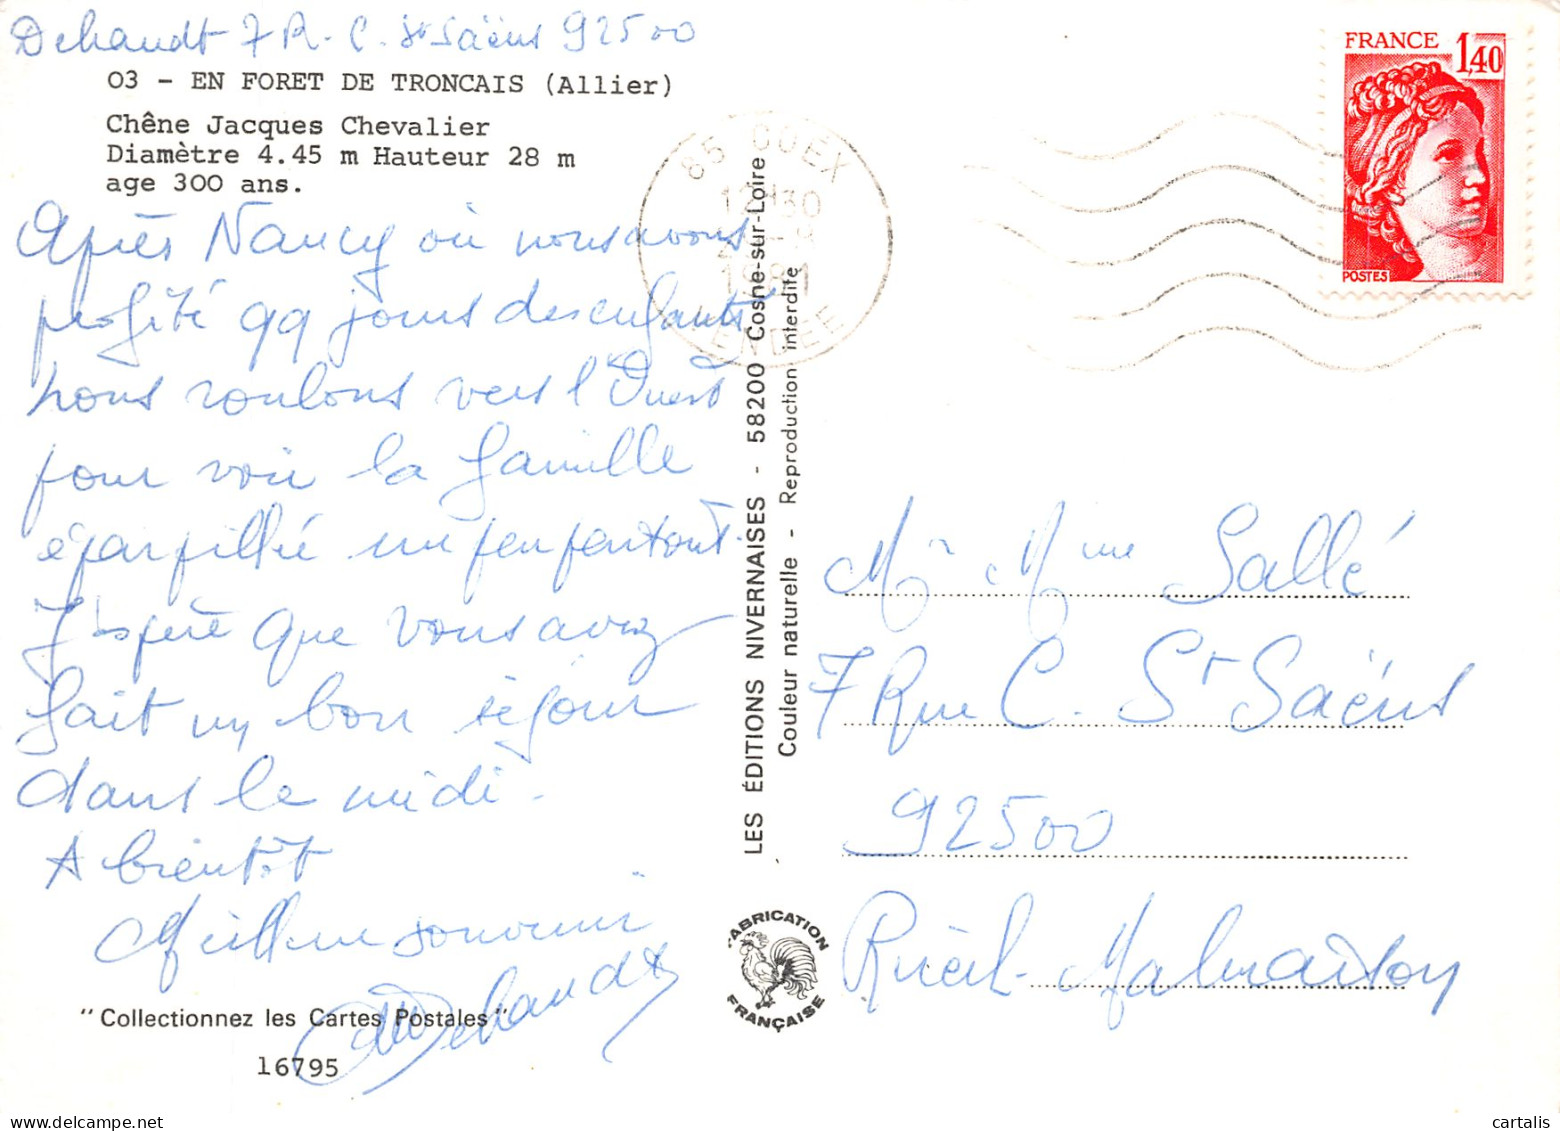 Dehandt 7 R. C. St Saëns 92500
03 - EN FORET DE TRONCAIS (Allier)
Chêne Jacques Chevalier
Diamètre 4.45 m Hauteur 28 m
age 300 ans.
Après Nancy où nous avons
profité qq jours des enfants
nous roulons vers l'Ouest
pour voir la famille
éparpillée un peu partout.
J'espère que vous avez
fait un bon séjour
dans le midi.
A bientôt
Meilleur souvenir
Dehandt
"Collectionnez les Cartes Postales"
16795
LES ÉDITIONS NIVERNAISES - 58200 Cosne-sur-Loire
Couleur naturelle - Reproduction interdite
FABRICATION
FRANÇAISE
85 COEX
12H30
1981
VENDEE
FRANCE 1,40
POSTES
Mr Mme Sallé
7 Rue C. St Saëns
92500
Rueil-Malmaison
cartalis
www.delcampe.net